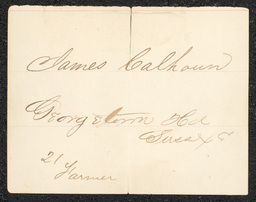 James Calhoun
Georgetown Hd
Sussex
21
Farmer